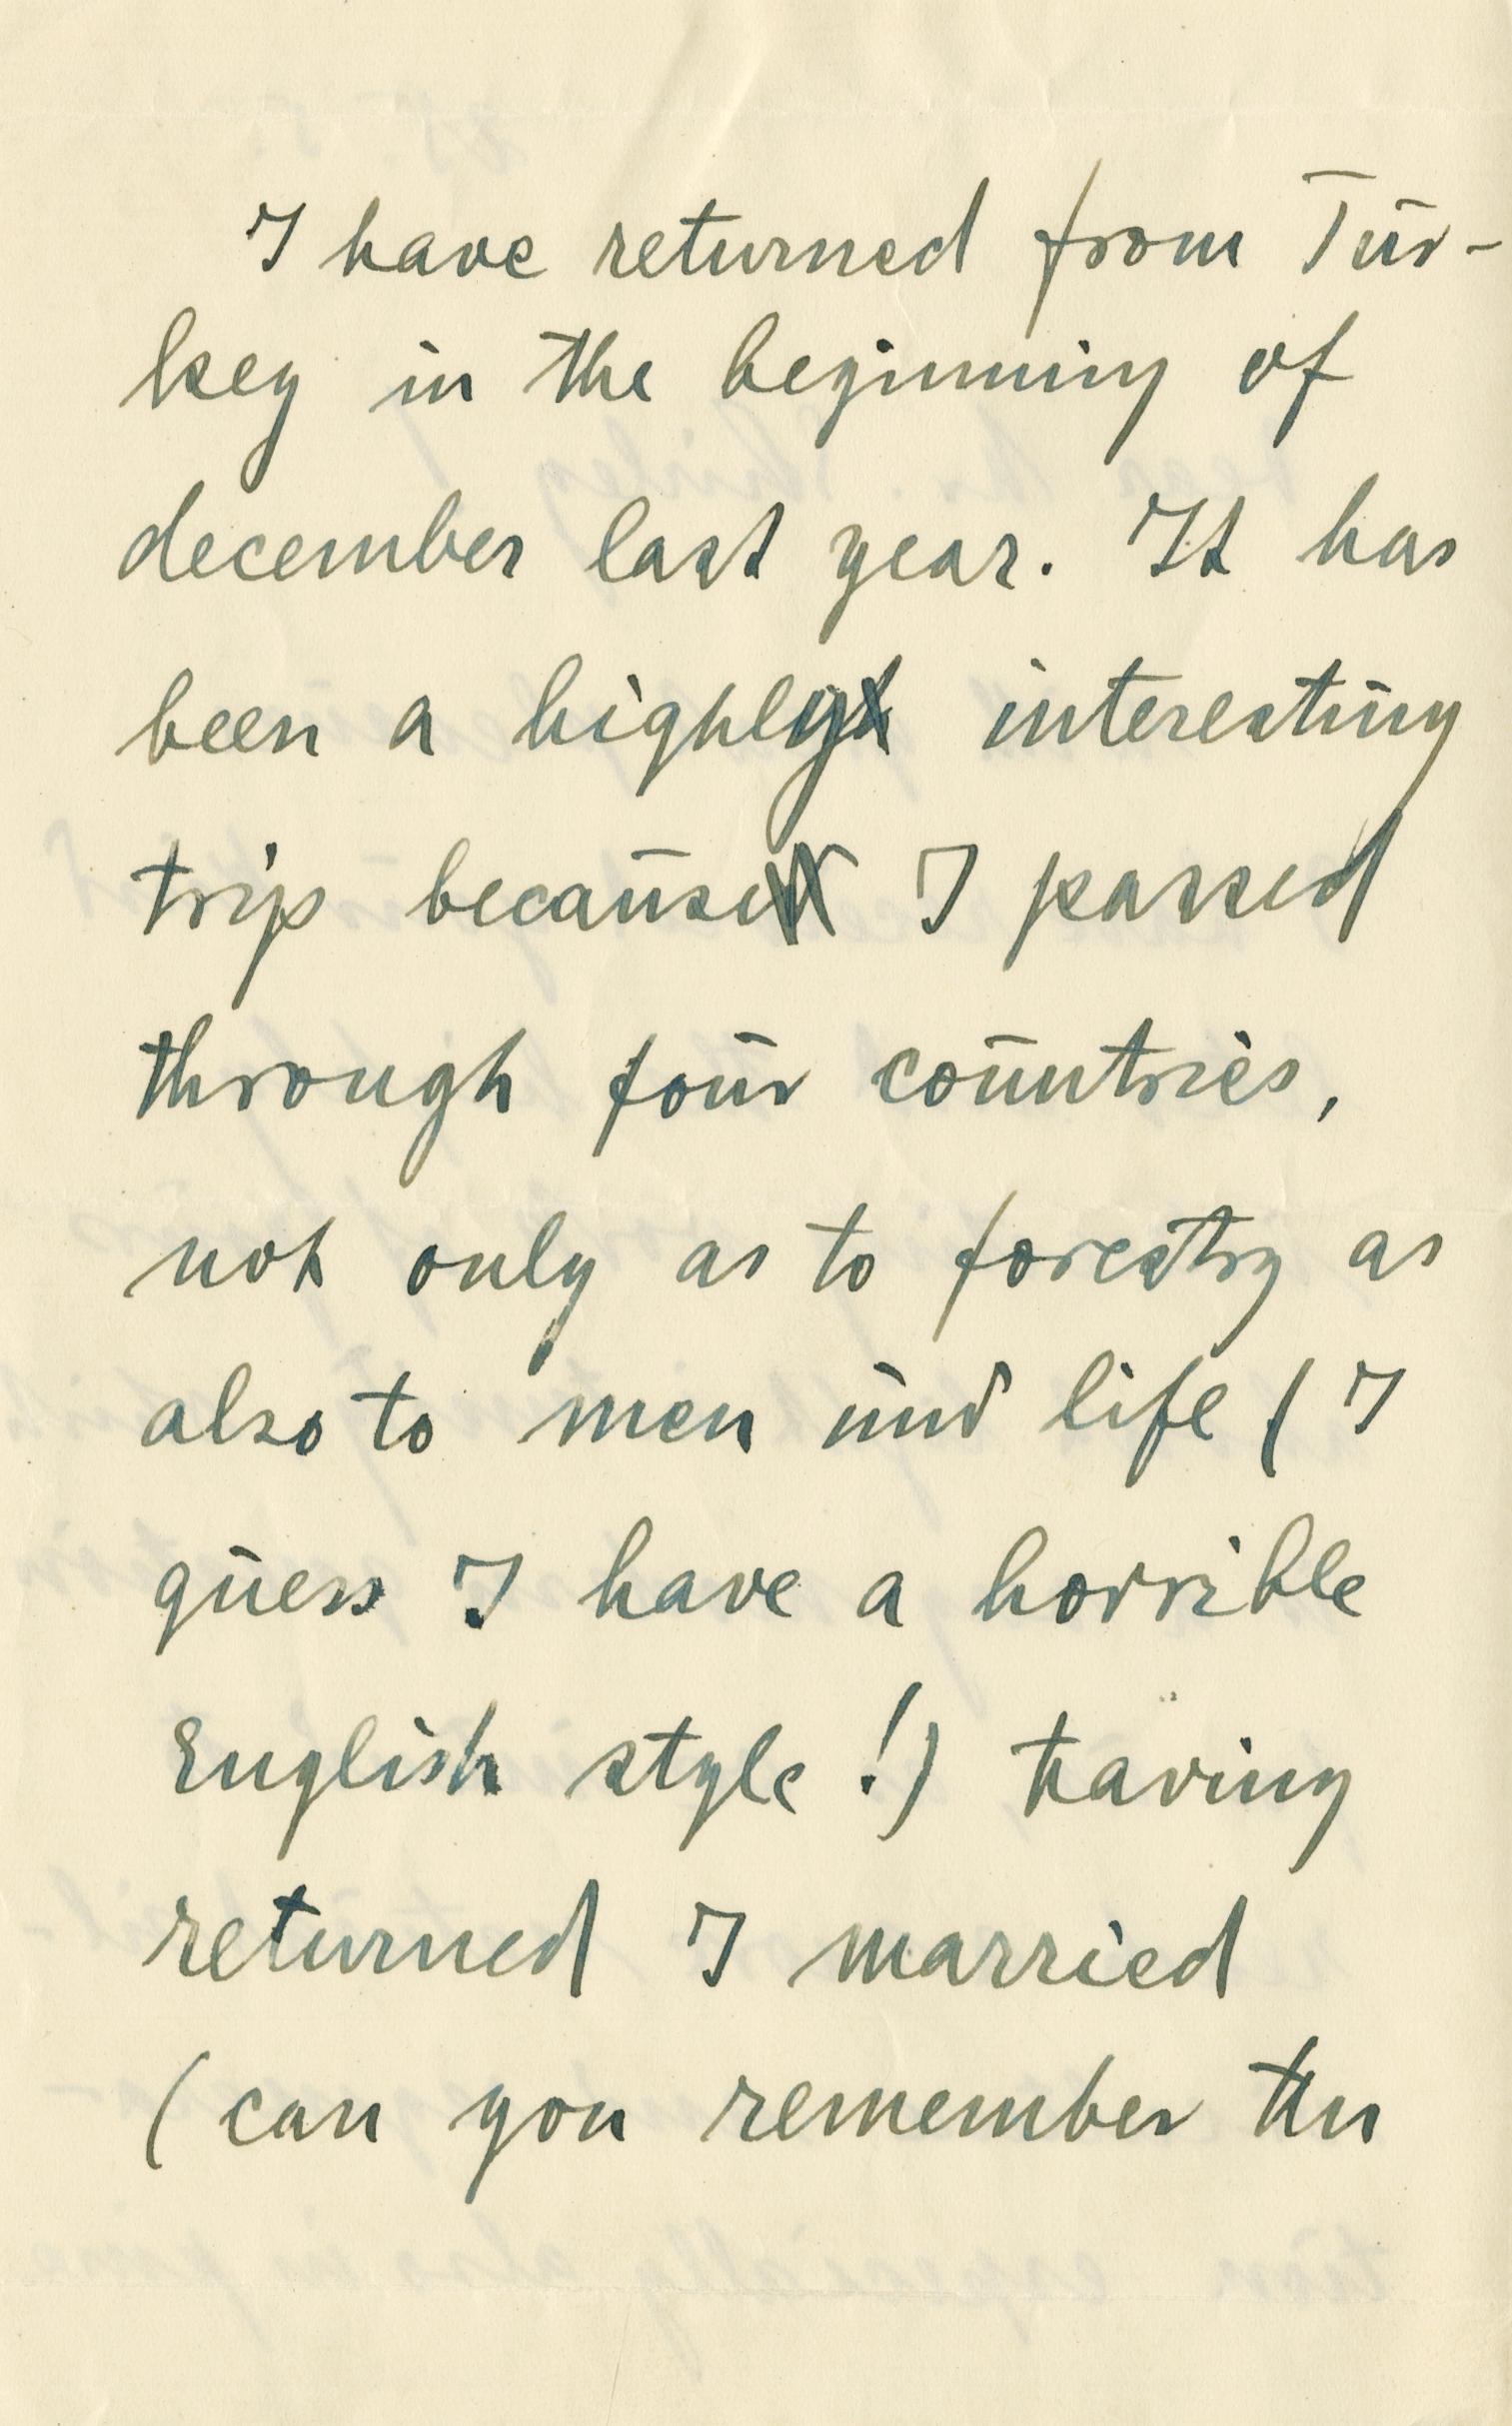 I have returned from Tur-
key in the beginning of
december last year. It has
been a highly interesting
trip because I passed
through four countries,
not only as to forestry as
also to men und life (I
guess I have a horrible
English style!) Having
returned I married
(can you remember the